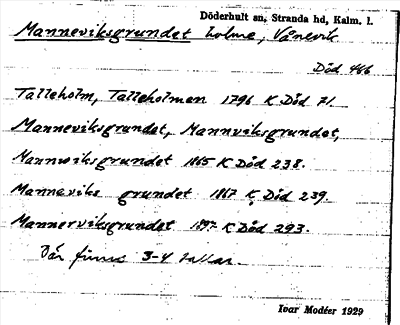 Döderhult sn, Stranda hd, Kalm. l.
Manneviksgrundet holme, Vånevik
Död 466
Talleholm, Talleholmen 1796 K Död 71.
Manneviksgrundet, Mannviksgrundet,
Mannviksgrundet 1865 K Död 238.
Manneviks grundet 1867 K, Död 239.
Mannerviksgrundet 1897 K Död 293.
Där finns 3-4 tallar.
Ivar Modéer 1929